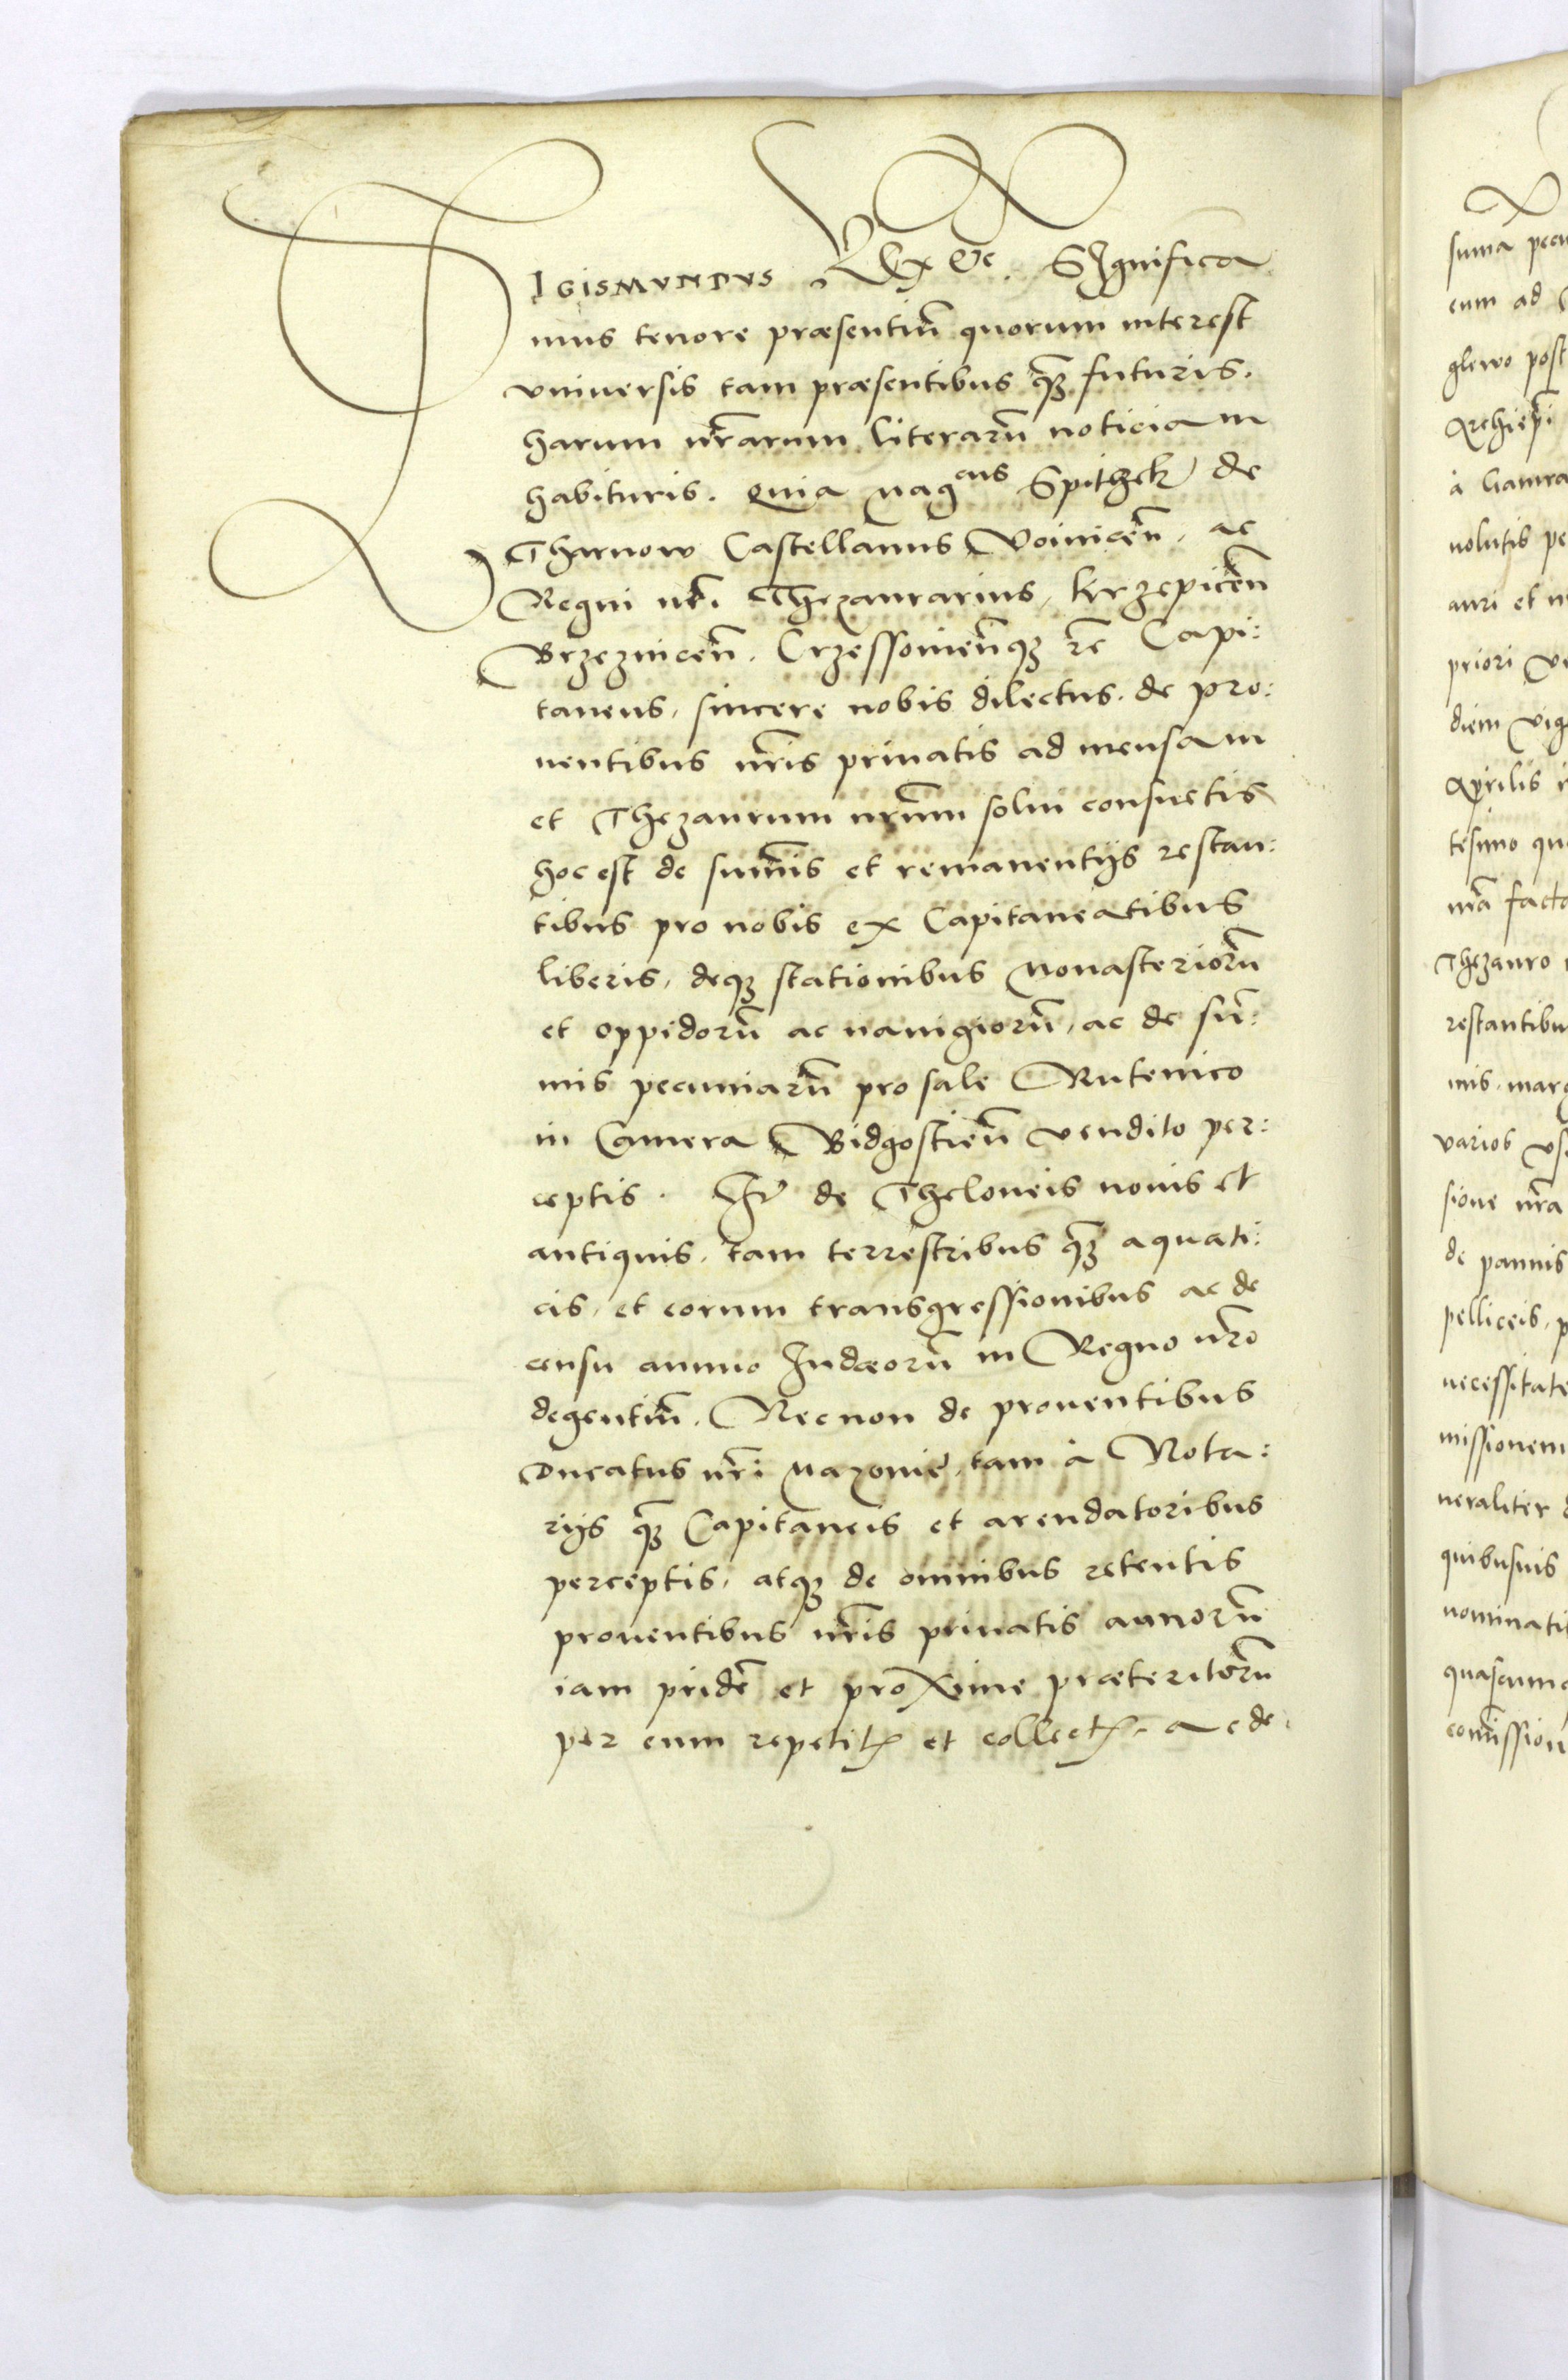 SIGISMVNDVS Rex &c. SIgnifica
mus tenore præsentiũ quorum interest
vniuersis tam præsentibus q̃ȝ futuris.
harum nr̃arum literarũ noticiam
habituris. Quia Mag^cus Spithek de
Tharnow Castellanus Voiniceñ, ac
Regni nr̃i Thezaurarius, Krzepiceñ
Brzezniceñ. Crzessouieñqȝ &c Capi:
taneus, sincere nobis dilectus. de pro:
uentibus nr̃is priuatis ad mensam
et Thezaurum nr̃um solui consuetis
hoc est de sum̃is et remanentijs restan:
tibus pro nobis ex Capitaneatibus
liberis, deqȝ stationibus Monasteriorũ
et oppidorũ ac nauigiorũ, ac de sum̃:
mis pecuniarũ pro sale Rutenico
in Camera Bidgostieñ vendito per:
ceptis. It̃ de Theloneis nouis et
antiquis, tam terrestribus q̃ȝ aquati:
cis, et eorum transgressionibus ac de
censu annuo Iudæorũ in Regno nr̃o
degentiũ. Necnon de prouentibus
Ducatus nr̃i Mazoniæ, tam à Nota:
rijs q̃ȝ Capitaneis et arendatoribus
perceptis, atqȝ de omnibus retentis
prouentibus nr̃is priuatis annorũ
iam pridẽ et proxime præteritorũ
per eum repetitꝭ et collectꝭ. ac de
sum̃a pecu
eum ad
glewo post
Archiep̃i
à Gamra
uolutis pe
auri et
priori
diem vig
Aprilis
tesimo qu
nr̃a facta
Thezauro
restantibu
mis. marc
varios vs
sione nr̃a
de pannis
pelliceis, p
necessitate
missionem
neraliter
quibusuis
nominati
quascunq
com̃ission